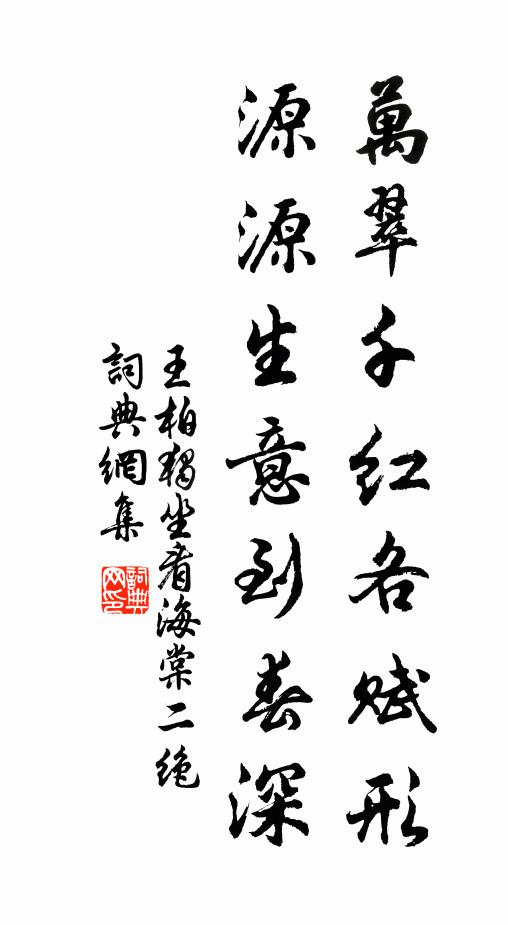 萬翠千红各赋形
源源生意到春深
王柏獨坐看海棠二绝
詞典網集
詞典網印